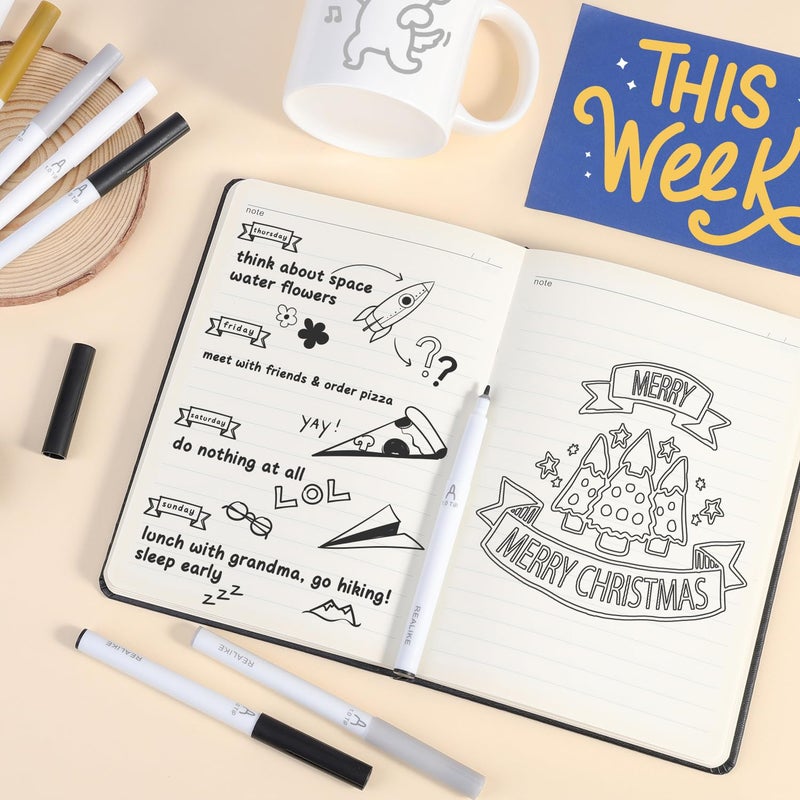 THIS
Week
note
thursday
think about space
water flowers
??
friday
meet with friends & order pizza
saturday
YAY!
do nothing at all
LOL
sunday
lunch with grandma, go hiking!
sleep early
zzz
note
MERRY
MERRY CHRISTMAS
A
REALIKE
REALIKE
REALIKE